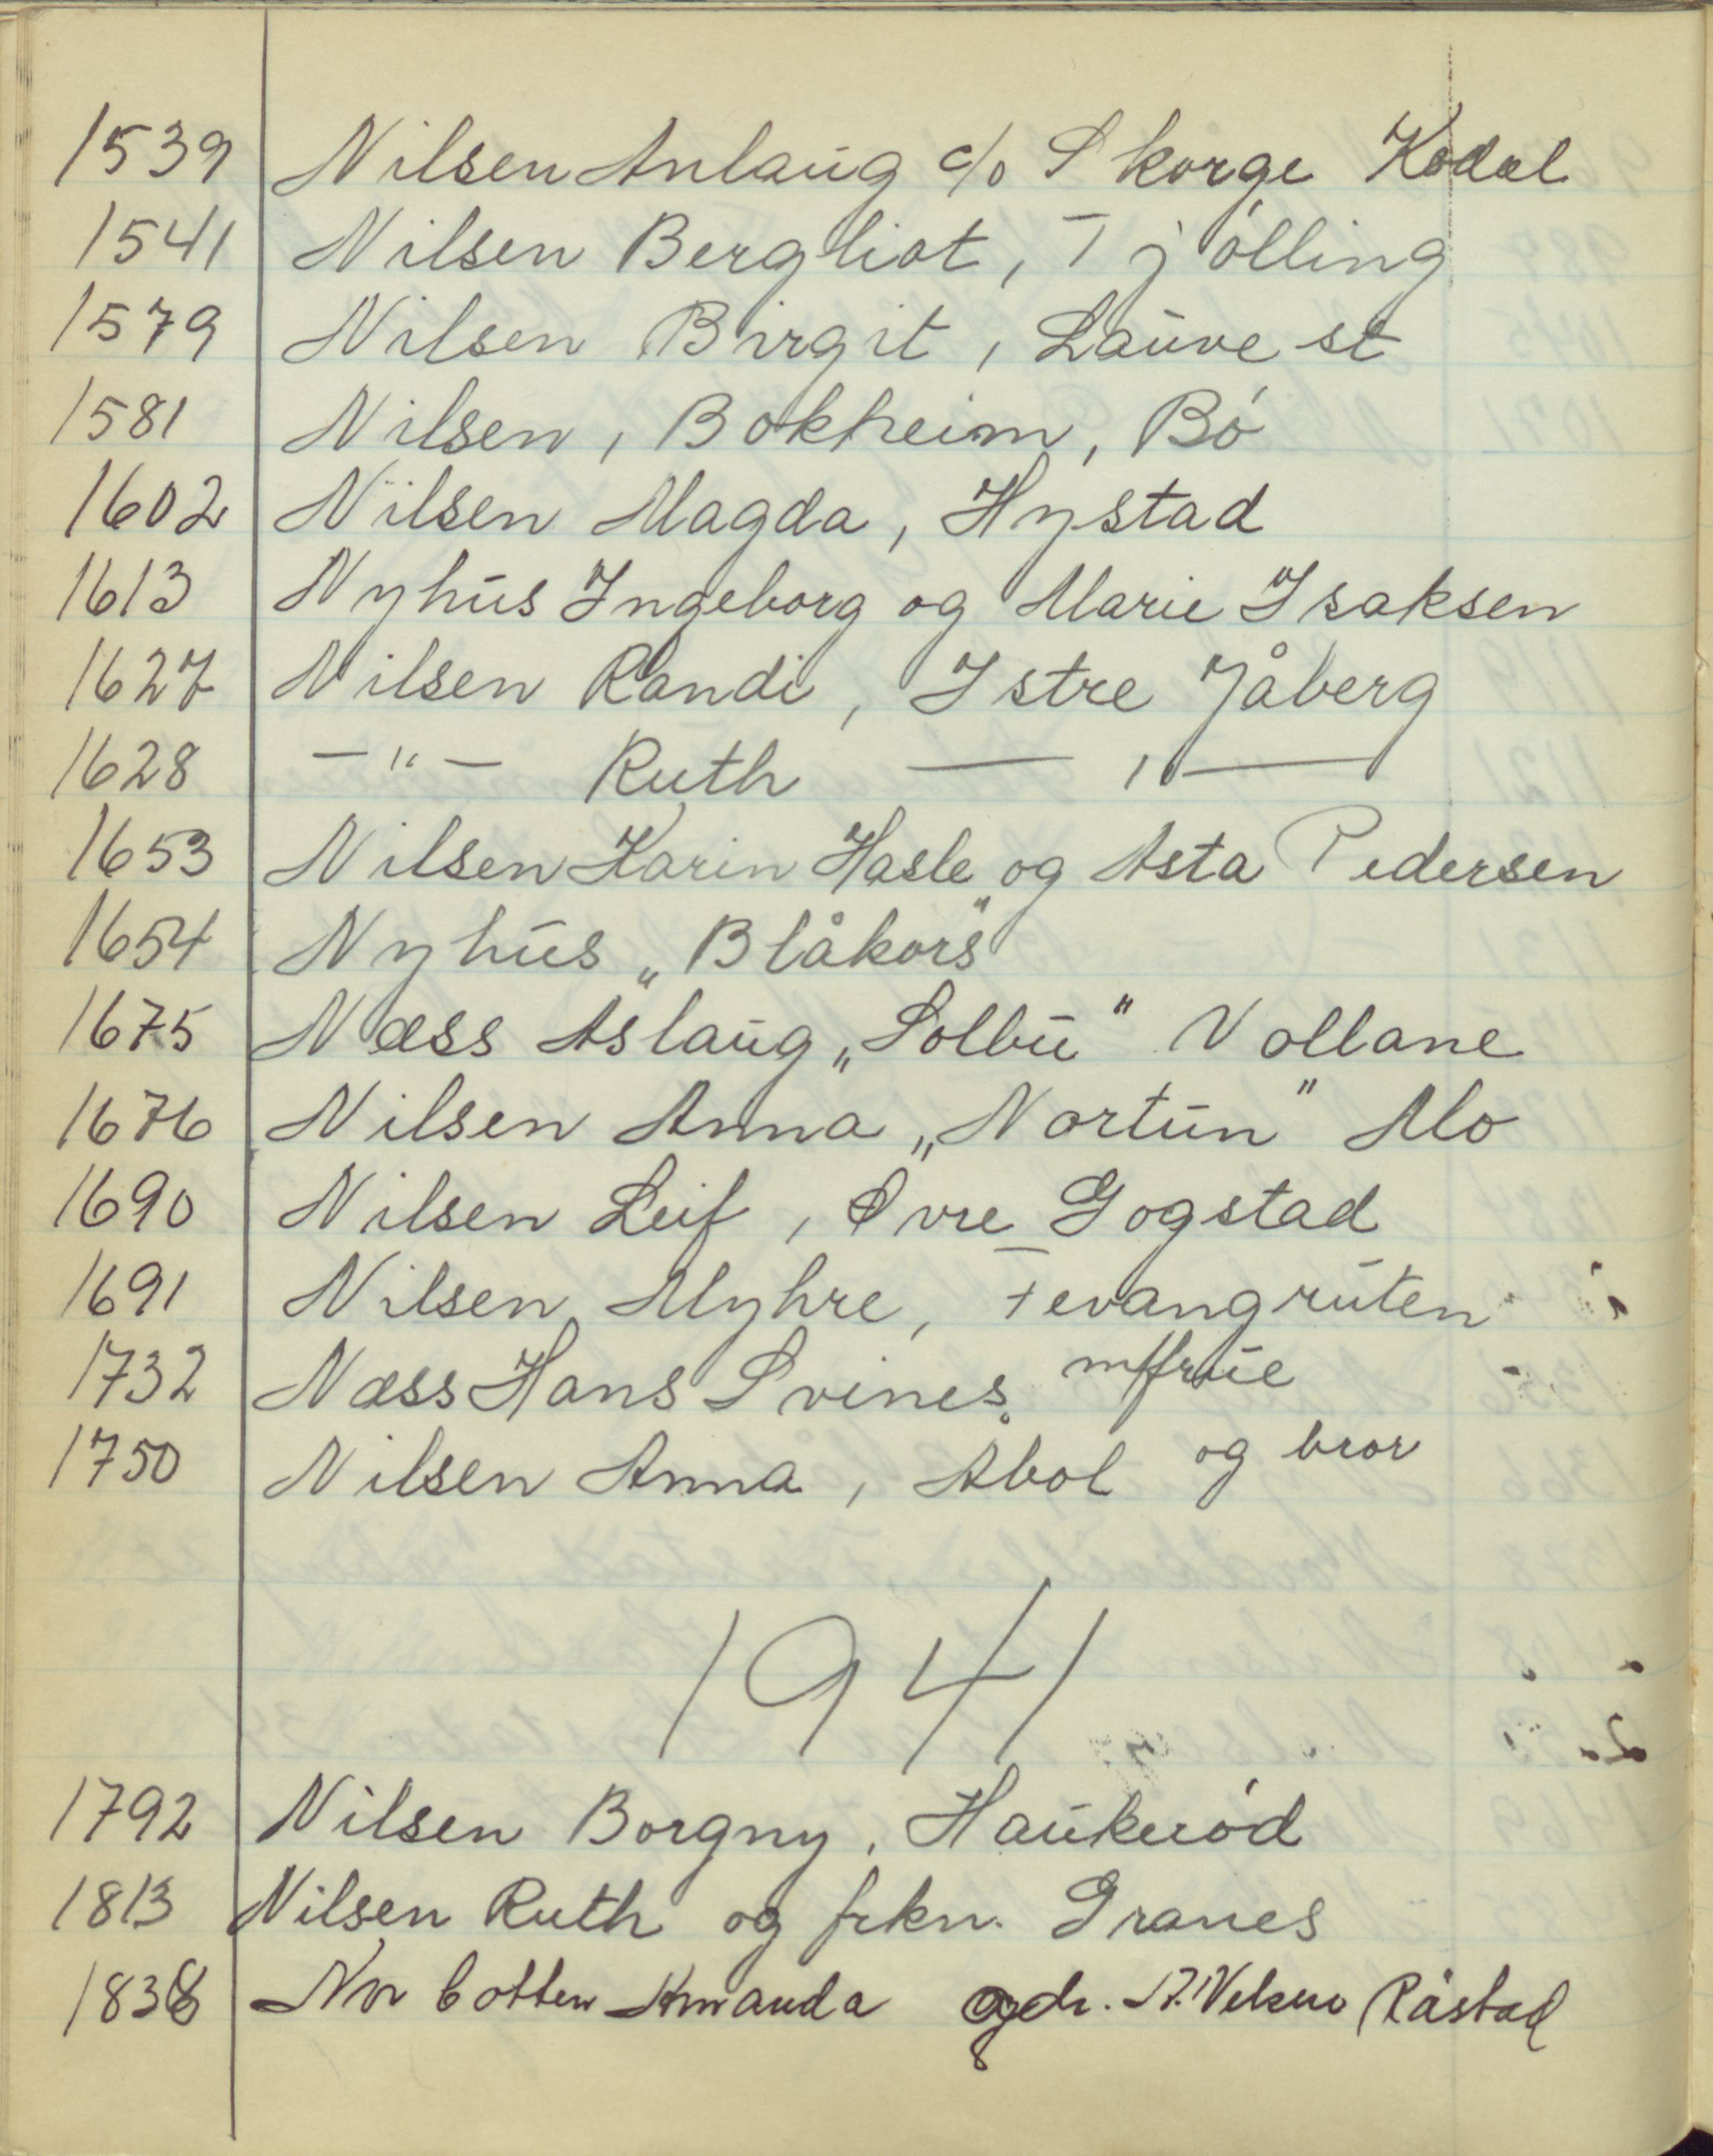 1539 Nilsen Anlaug c/o Skorge Kodal
1541 Nilsen Bergliot, Tjölling
1579 Nilsen Birgit, Lauve st
1581 Nilsen, Bokheim, Bó
1602 Nilsen Magda, Hystad
1613 Nyhus Ingeborg og Marie Isaksen
1627 Nilsen Randi, Istre Jåberg
1628 —"— Ruth —"—
1653 Nilsen Karin Hasle og Asta Pedersen
1654 Nyhus „Blåkors"
1675 Næss Aslaug „Solbu" Vollane
1676 Nilsen Anna „Nortun" Mo
1690 Nilsen Leif, Øvre Gogstad
1691 Nilsen Myhre, Fevangruten
1732 Næss Hans Svines. m/frue
1750 Nilsen Anna, Abol og bror
1941
1792 Nilsen Borgny, Haukeród
1813 Nilsen Ruth og frkn. Granes
1838 Amanda Råstad